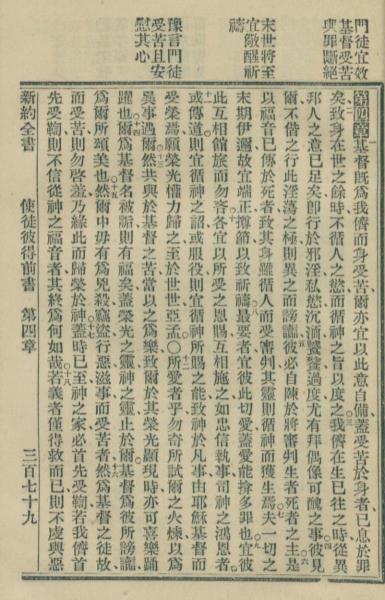 門徒宜效
基督受苦
與罪斷絕
末世將至
宜儆醒祈
禱
豫言門徒
受苦且安
慰其心
第四章基督既爲我儕而身受苦爾亦宜以此意自備蓋受苦於身者已息於罪
矣致身在世之餘時不循人之慾而循神之旨以度之我儕在生已往之時從異
邦人之意已足矣卽行於邪淫私慾沉湎饕餮過度尤有拜偶像可醜之事彼見
爾不偕之行此淫蕩之極則異之而謗讟彼必自陳於將審判生者死者之主是
以福音已傳於死者致其身雖循人而受審判其靈則循神而獲生焉夫一切之
末期伊邇故宜端正撙節以致祈禱最要者宜彼此切愛蓋愛能揜多罪也宜彼
此互相館旅而勿吝各宜以所受之恩賜互相施之如忠信執事司神之鴻恩者
或傳道則宜循神之詔或服役則宜循神所賜之能致神於凡事由耶穌基督而
受榮焉願榮光權力歸之至於世世亞孟〇所愛者乎勿奇所試爾之火煉以爲
異事遇爾然共與於基督之苦當以之爲樂致爾於其榮光顯現時亦可喜樂踊
躍也爾爲基督名被詬則有福矣蓋榮光之靈神之靈止於爾基督爲彼所謗讟
爲爾所頌美也然爾中毋有爲兇殺竊盜行惡滋事而受苦者然爲基督之徒故
而受苦則勿啓羞乃緣此而歸榮於神蓋時已至神之家必首先受鞫若我儕首
先受鞫則不信從神之福音者其終爲何如哉若義者僅得救而已則不虔與惡
新約全書　使徒彼得前書　第四章　三百七十九